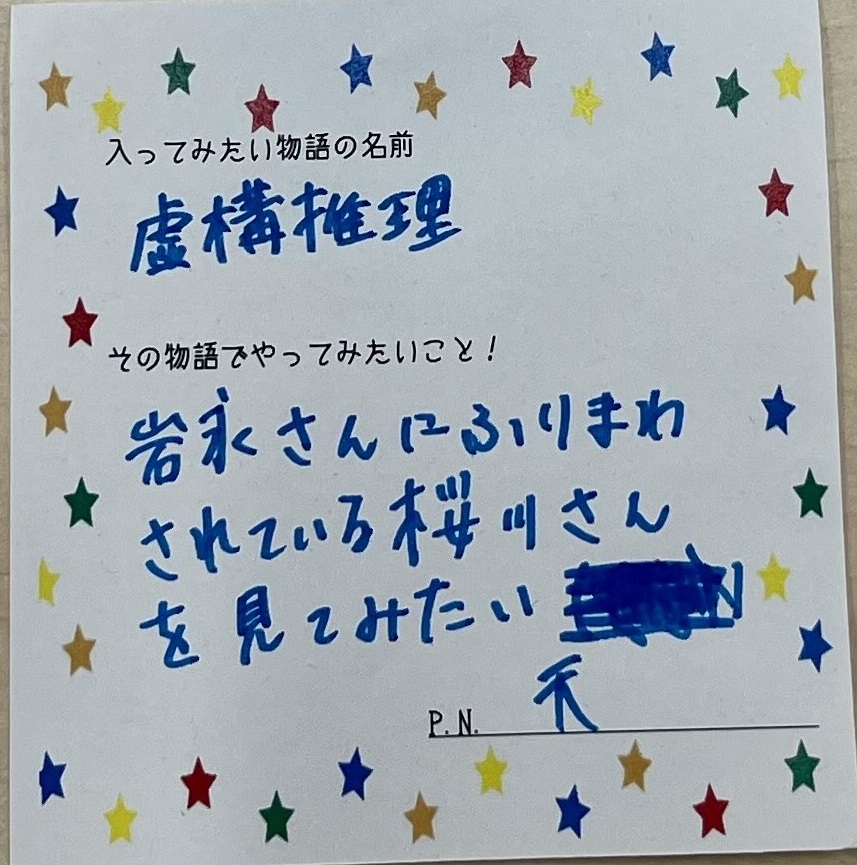 入ってみたい物語の名前
虚構推理
その物語でやってみたいこと!
岩永さんにふりまわ
されている桜川さん
を見てみたい
P.N. 天